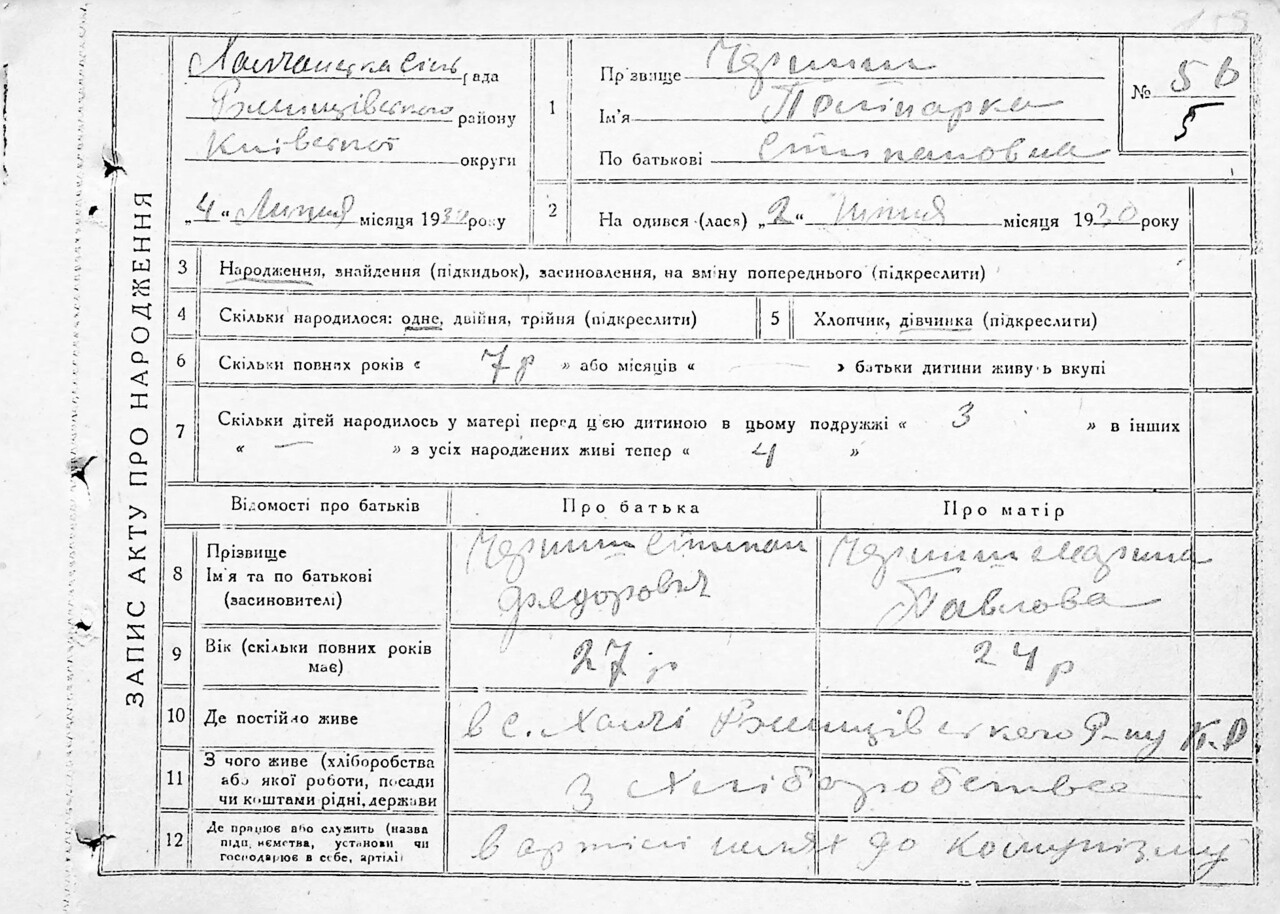 ЗАПИС АКТУ ПРО НАРОДЖЕННЯ
рада
Ржищівського району
Київської округи
„4“ Липня місяця 1930 року
1
Прізвище
Ім'я
По батькові Степановна
№ 56
5
2
На одився (лася) „2“ Липня місяця 1930 року
3 Народження, знайдення (підкидьок), засиновлення, на зміну попереднього (підкреслити)
4 Скільки народилося: одне, двійня, трійня (підкреслити)
5 Хлопчик, дівчинка (підкреслити)
6 Скільки повних років « 7 р » або місяців « — » батьки дитини живуть вкупі
7 Скільки дітей народилось у матері перед цією дитиною в цьому подружжі « 3 » в інших
« — » з усіх народжених живі тепер « 4 »
Відомості про батьків
Про батька
Про матір
8 Прізвище
Ім'я та по батькові
(засиновителі)
Степан
Федорович
Марина
Павлова
9 Вік (скільки повних років
має)
27 р
24 р
10 Де постійно живе
в с. Ржищівського Р-ну К.О.
11 З чого живе (хліборобства
або якої роботи, посади
чи коштами рідні, держави
З Хліборобства
12 Де працює або служить (назва
підприємства, установи чи
господарює в себе, артілі)
В артілі шлях до комунізму